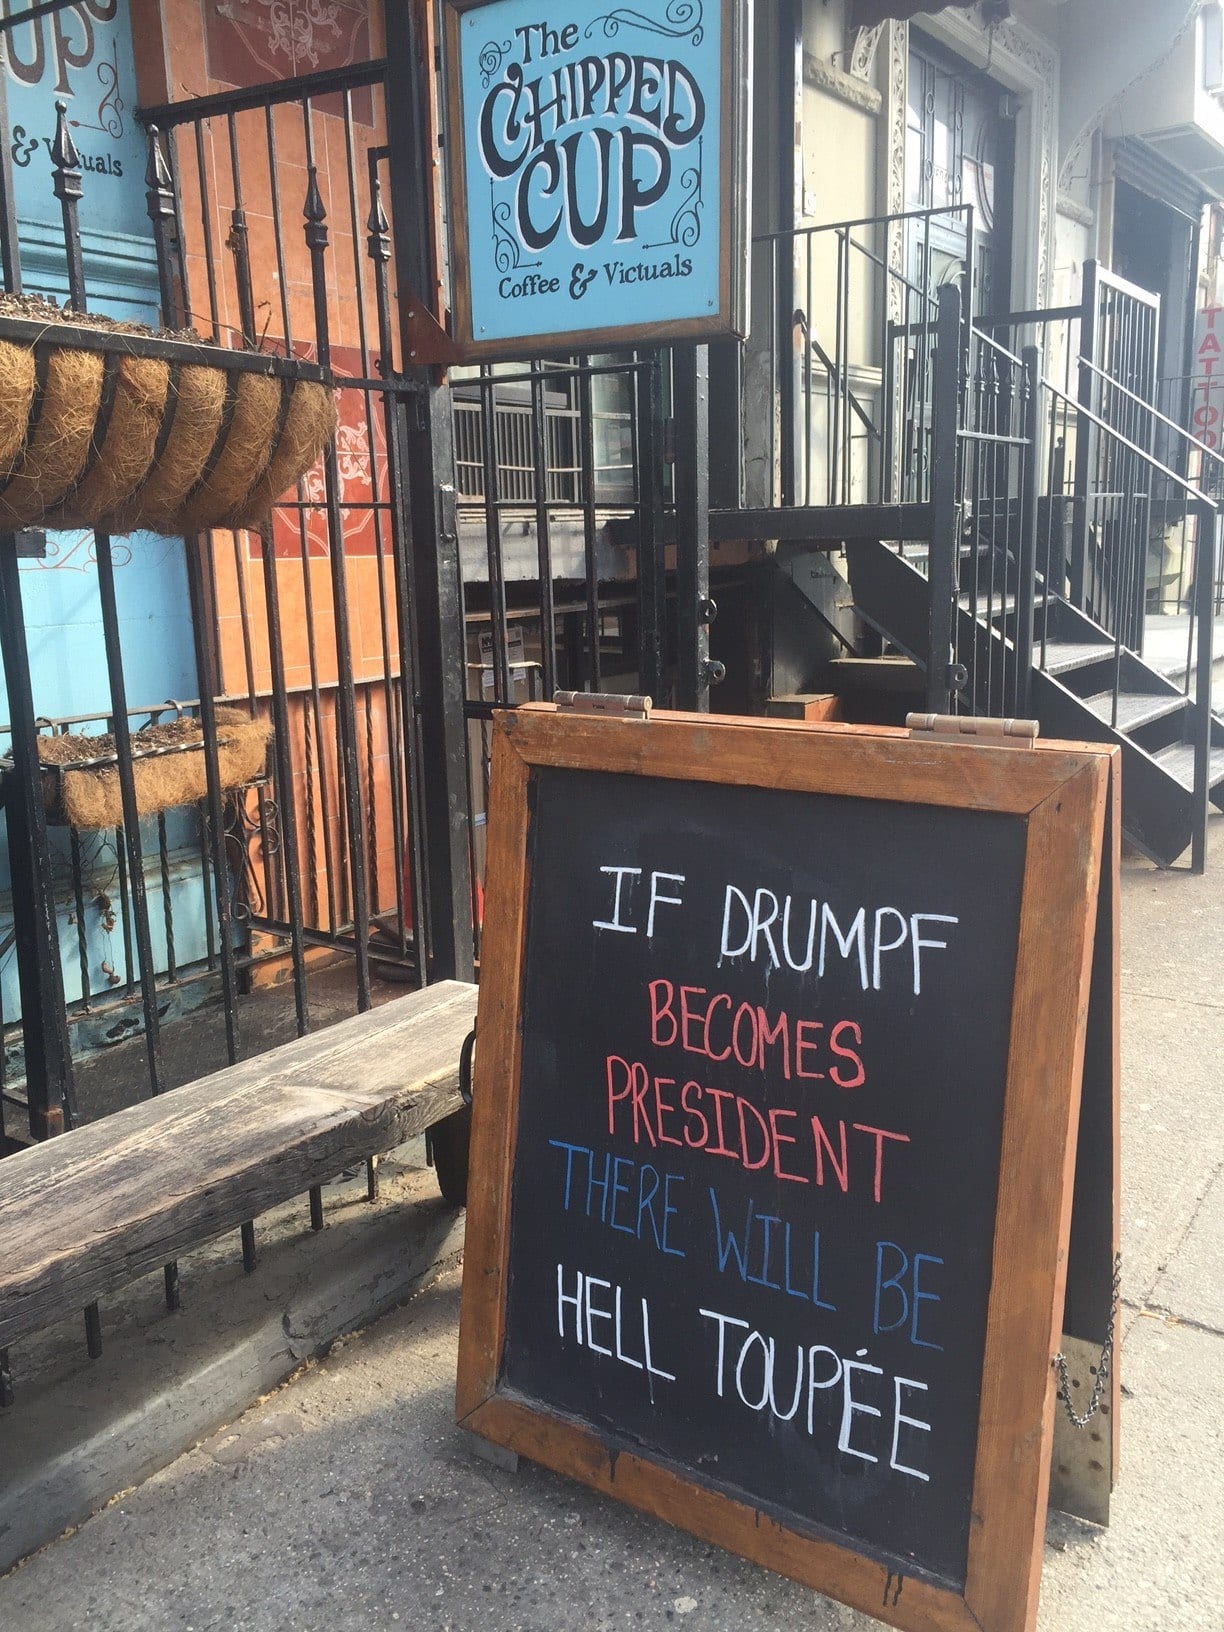 UP
& Victuals
The
CHIPPED
CUP
Coffee & Victuals
TATTOO
IF DRUMPF
BECOMES
PRESIDENT
THERE WILL BE
HELL TOUPÉE